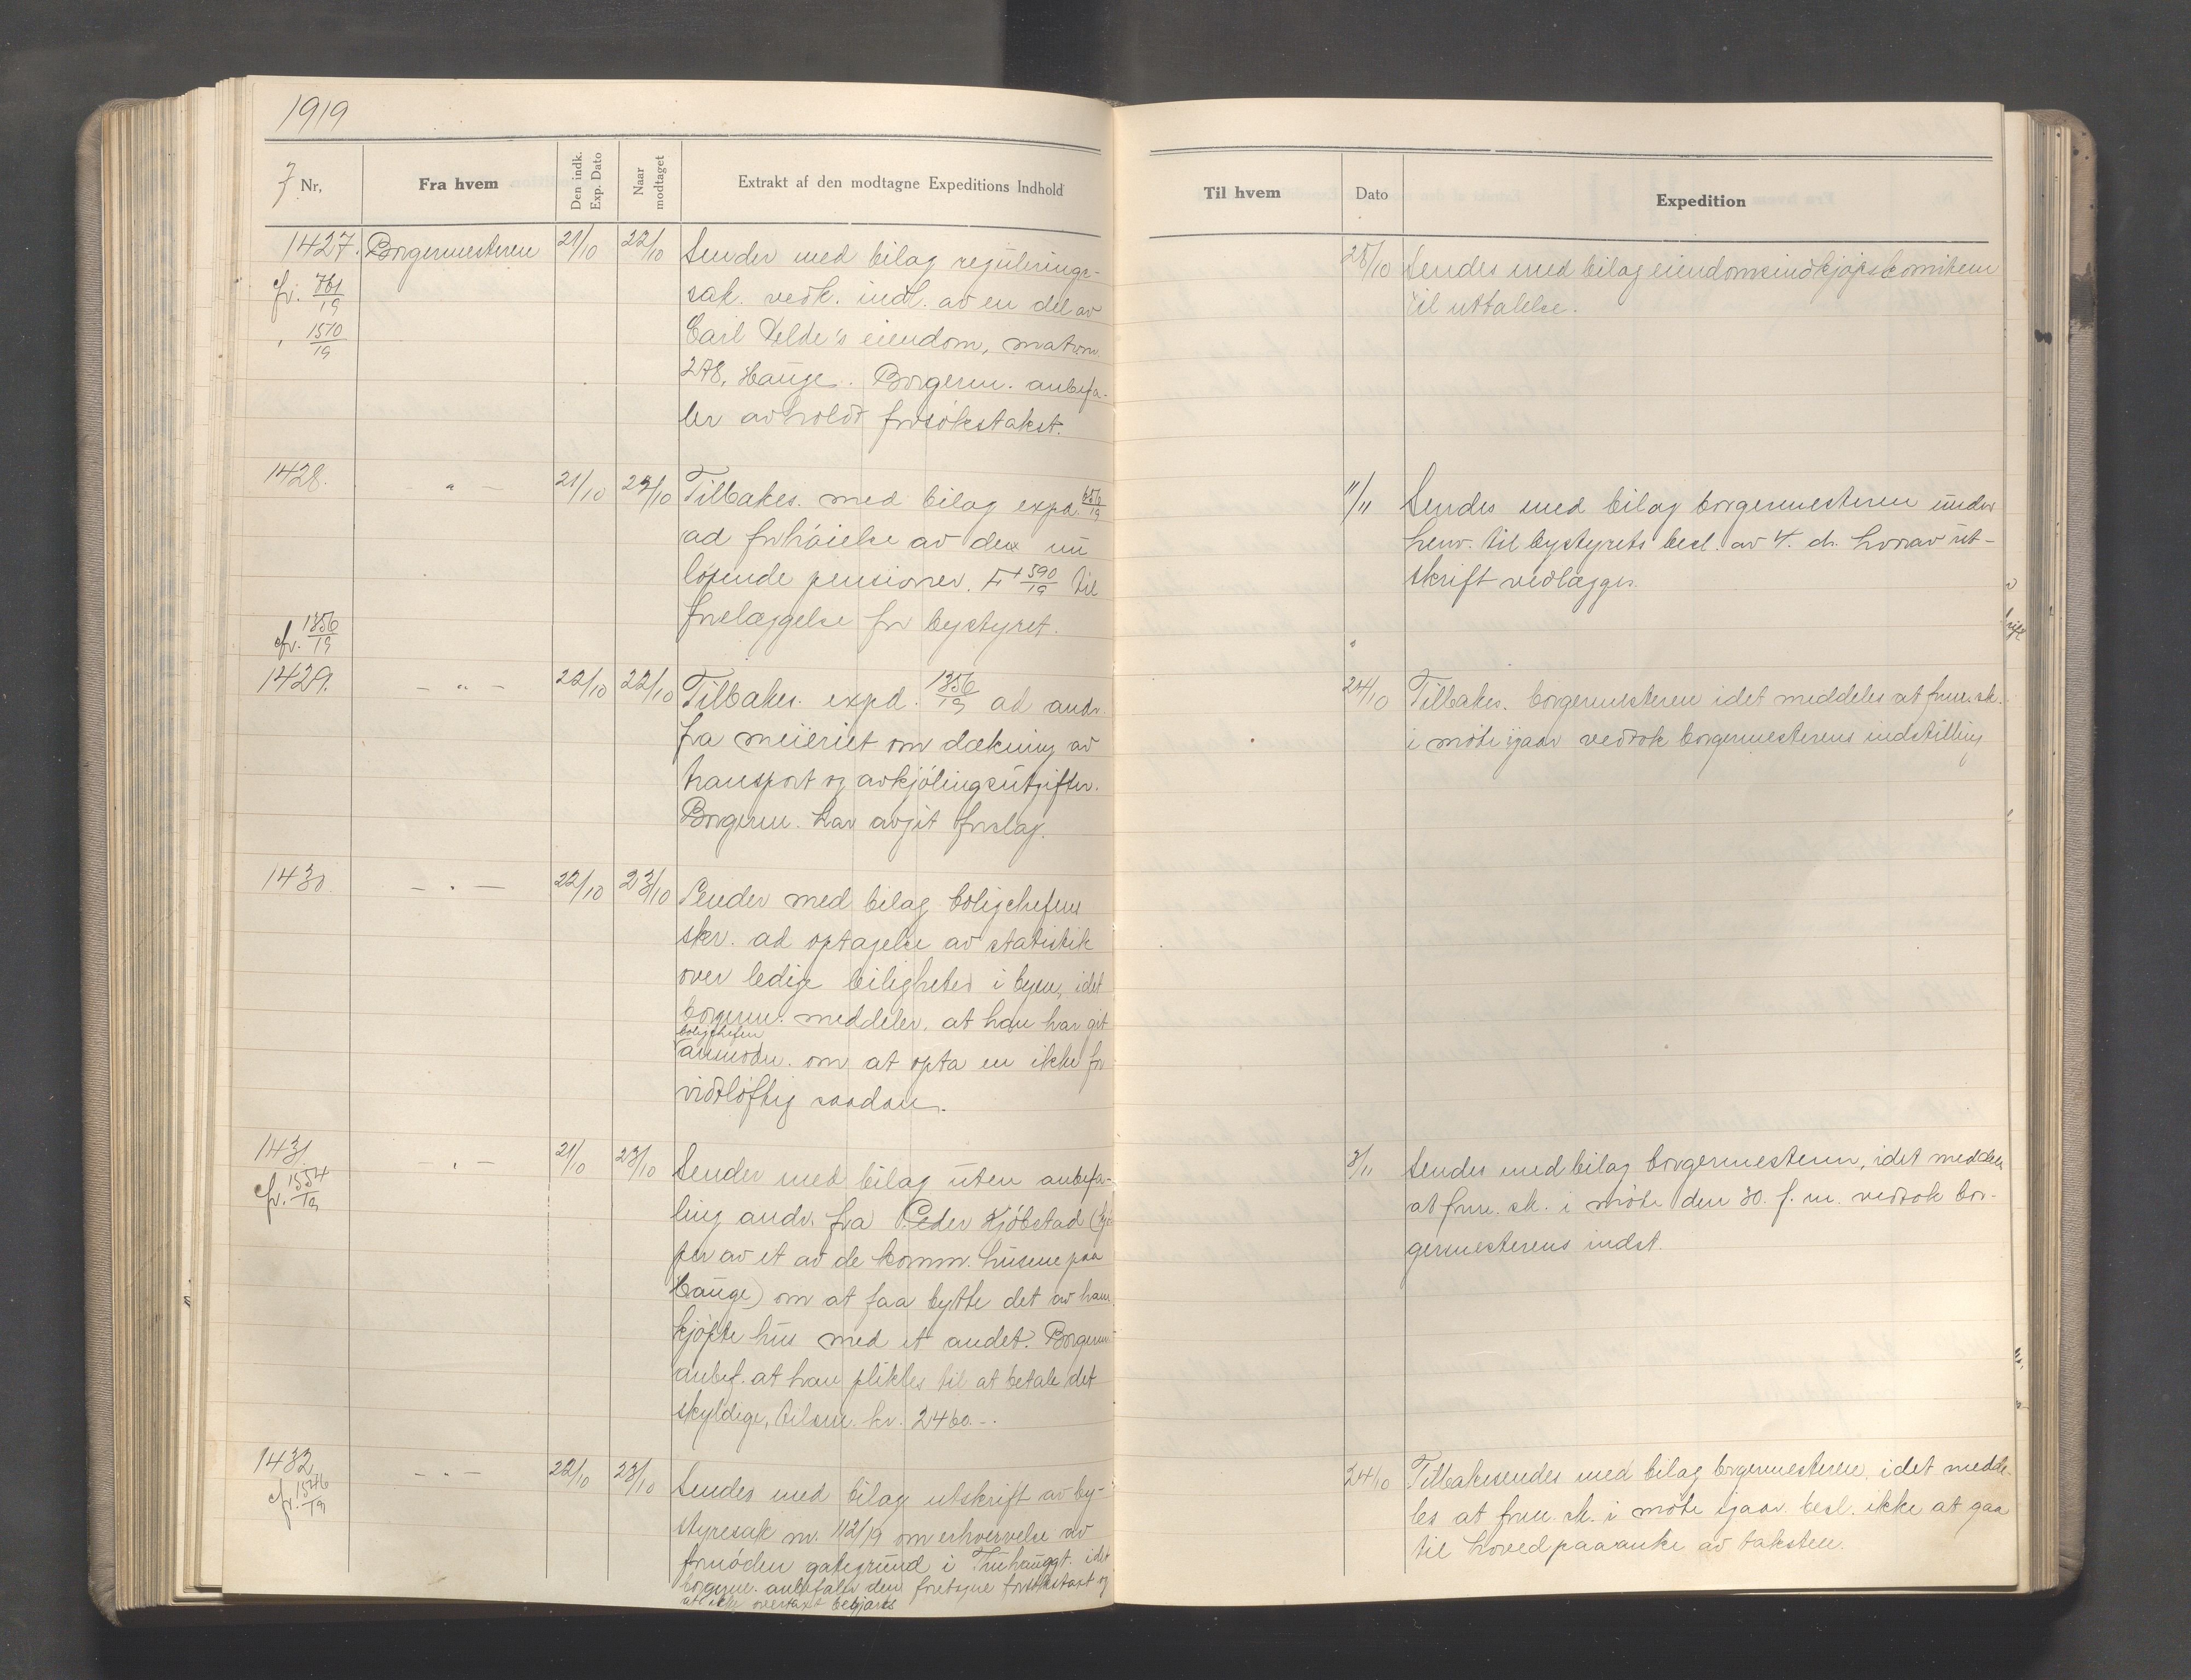 1919
J. Nr,
Fra hvem
Den indk. Exp. Dato
Naar modtaget
Extrakt af den modtagne Expeditions Indhold
Til hvem
Dato
Expedition
1427. Borgermesteren 21/10 22/10 Sender med bilag regulerings-
cfr. 761/19
sak. vedk. indl. av en del av
" 1510/19
Carl Velde's eiendom, matrnr.
278, Hauge. Borgerm. anbefa-
ler avholdt forsökstakst.
25/10 Sendes med bilag eiendomsindkjøpskomiteen
til uttalelse.
1428. - " - 21/10 22/10 Tilbakes. med bilag expd. 656/19
ad forhöielse av de nu
löpende pensioner. Ft 590/19 til
forelæggelse for bystyret.
cfr. 1356/19
11/11 Sendes med bilag borgermesteren under
henv. til bystyrets besl. av 4. ds. hvorav ut-
skrift vedlægges.
1429. - " - 22/10 22/10 Tilbakes. expd. 1356/19 ad andr.
fra meieriet om dækning av
transport og avkjölingsutgifter.
Borgerm. har avgit forslag.
24/10 Tilbakes. borgermesteren idet meddeles at form.sk.
i möte igaar vedtok borgermesterens indstilling
1430 - " - 22/10 23/10 Sender med bilag boligchefens
skr. ad optagelse av statistik
over ledige leiligheter i byen, idet
borgerm. meddeler, at han har git
boligchefen
anmodn. om at opta en ikke for
vidtlöftig saadan.
1431. - " - 21/10 23/10 Sender med bilag uten anbefa-
cfr. 1554/19
ling andr. fra Peder Kjöbstad (kjö-
per av et av de komm. husene paa
Hauge) om at faa bytte det av ham
kjöpte hus med et andet. Borgerm.
anbef. at han pliktes til at betale det
skyldige, tilsm. kr. 2460.-.
3/11 Sendes med bilag borgermesteren, idet meddeles
at form. sk. i möte den 30. f. m. vedtok bor-
germesterens indst.
1432. - " - 22/10 23/10 Sendes med bilag utskrift av by-
cfr. 1546/19
styresak nr. 112/19 om erhvervelse av
fornöden gategrund i Tuhauggt. idet
borgerm. anbefaler den foretagne forsökstaxt og
at ikke overtaxt begjæres
24/10 Tilbakesendes med bilag borgermesteren, idet medde-
les at form. sk. i möte igaar besl. ikke at gaa
til hovedpaaanke av taksten.